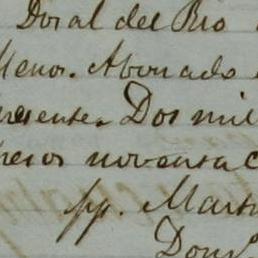 Doral del Rio
Menor. Abonado
presente. Dos mil
pesos noventa c
pp. Mart
Dom